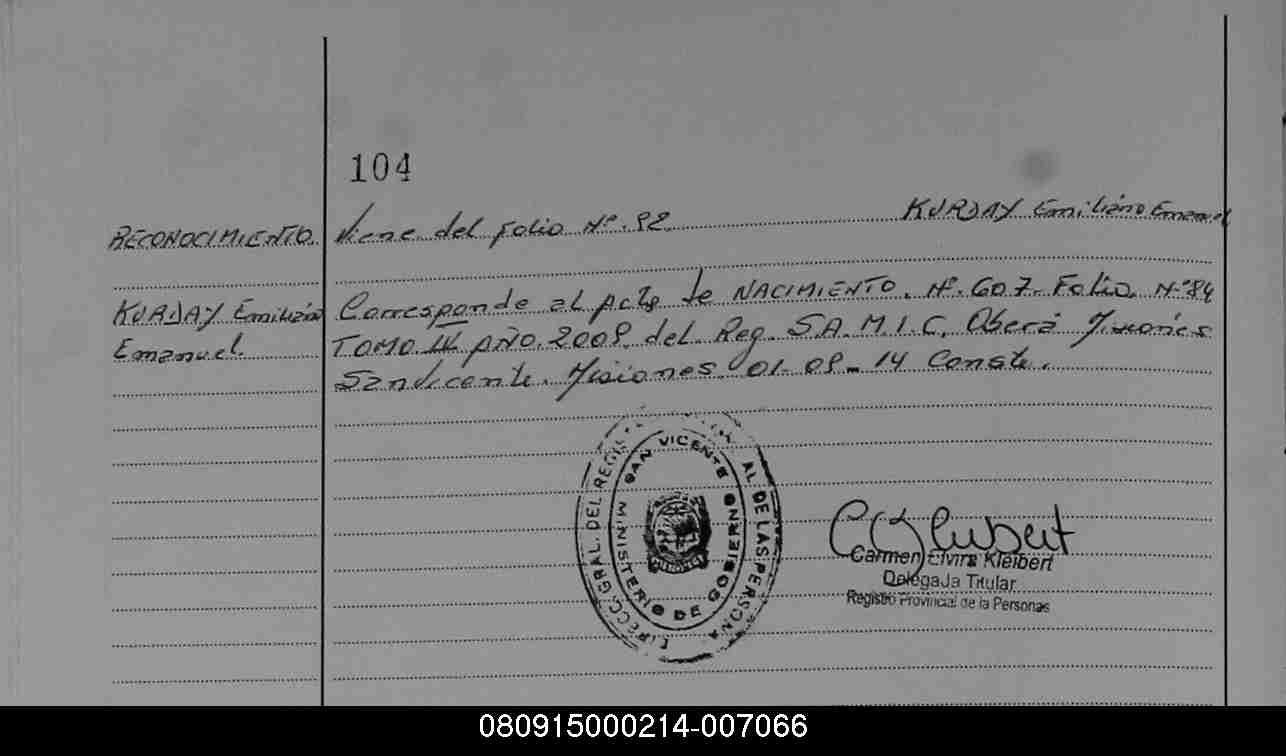 104
KURDAY Emiliano Emanuel
RECONOCIMIENTO. Viene del folio Nº 92
KURDAY Emiliano Corresponde al Acta de NACIMIENTO. Nº 607. Folio. Nº 84
Emanuel. TOMO IV AÑO. 2009. del. Reg. S.A.M.I.C. Oberá Misiones
San Vicente. Misiones 01-09-14 Conste.
DIRECC. GRAL. DEL REG. AL DE LAS PERSONA
SAN VICENTE
MINISTERIO DE GOBIERN
Carmen Elvira Kleibert
Delegada Titular
Registro Provincial de la Personas
080915000214-007066